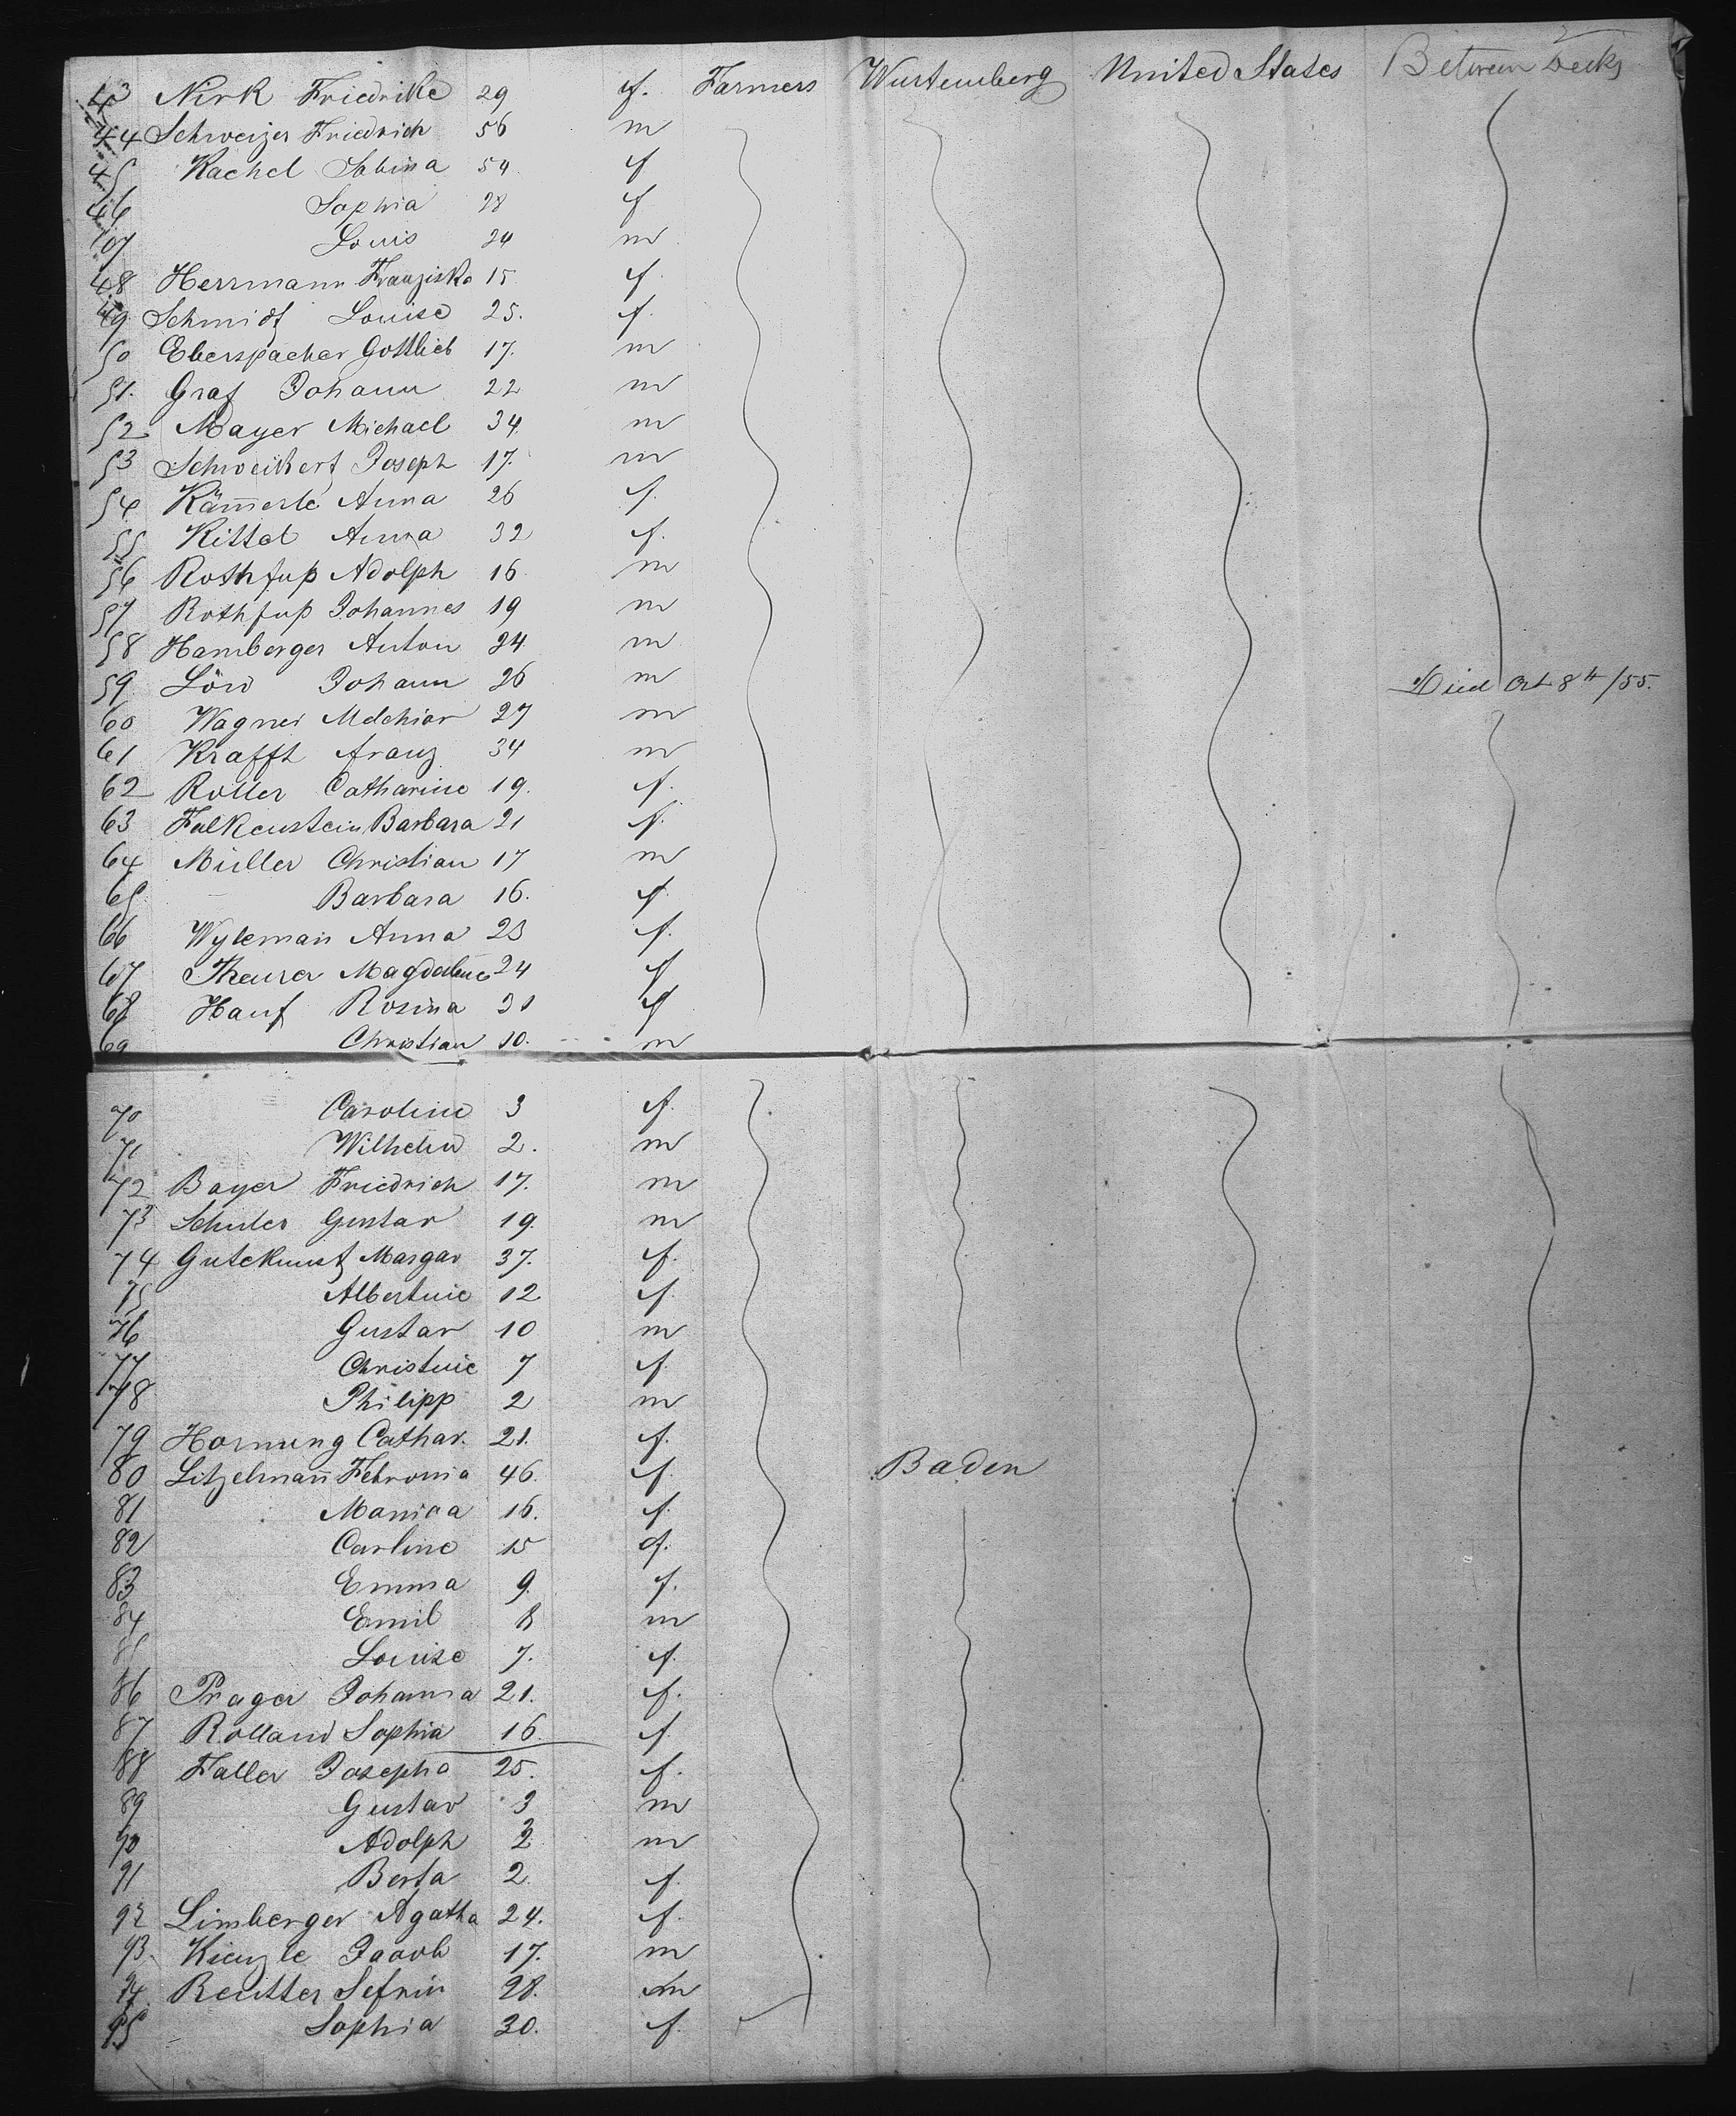 43 Nirk Friedrike 29 f. Farmers Wurtemberg United States Between Decks
44 Schweizer Friedrich 56 m
45 Rachel Sabina 54 f
46 Sophia 28 f
47 Louis 24 m
48 Herrmann Franziska 15 f
49 Schmidt Louise 25. f.
50 Eberspacher Gottlieb 17. m
51. Graf Johann 22 m
52 Mayer Michael 34 m
53 Schweikert Joseph 17. m
54 Käm̄erle Anna 26 f.
55 Kittel Anna 32 f.
56 Rothfuß Adolph 16 m
57 Rothfuß Johannes 19 m
58 Hamberger Anton 24 m
59 Löw Johann 26 m Died Oct 8th/55.
60 Wagner Melchior 27 m
61 Krafft Franz 34 m
62 Roller Catharine 19. f.
63 Falkenstein Barbara 21 f.
64 Müller Christian 17 m
65. Barbara 16. f.
66 Wyleman̄ Anna 23 f.
67 Theurer Magdalene 24 f
68 Hauf Rosina 31 f
69 Christian 10. m
70 Caroline 3 f.
71 Wilhelm 2. m
72 Bayer Friedrich 17. m
73 Schuler Gustav 19. m
74 Gutekunst Margar 37. f.
75 Albertine 12. f.
76 Gustav 10 m
77 Christine 7 f.
78 Philipp 2 m
79 Hornung Cathar. 21. f.
80 Litzelman̄ Febronia 46. f. Baden
81 16. f.
82 Carline 15 f.
83 Emma 9. f.
84 Emil 8 m
85 Louise 7. f.
86 Prager Johanna 21. f.
87 Rolland Sophia 16. f.
88 Faller Josepha 25. f.
89 Gustav 3 m
90 Adolph m
91 Berta 2 f.
92 Limberger Agatha 24. f.
93. Kienzle Jacob 17. m
94. Reutter Sefrin 28. m
95 Sophia 30. f.